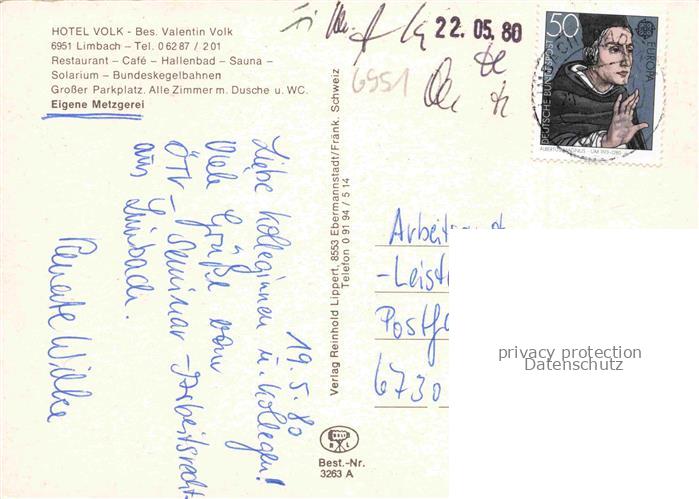 HOTEL VOLK - Bes. Valentin Volk
6951 Limbach - Tel. 0 62 87 / 201
Restaurant - Café - Hallenbad - Sauna -
Solarium - Bundeskegelbahnen
Großer Parkplatz. Alle Zimmer m. Dusche u. WC.
Eigene Metzgerei
22. 05. 80
6951
50
DEUTSCHE BUNDESPOST
EUROPA
ALBERTUS MAGNUS · UM 1193-1280
19.5.80
Liebe Kolleginnen u. Kollegen!
Viele Grüße vom
ÖTV-Seminar-Arbeitsrecht
aus Limbach.
Renate Wilke
Verlag Reinhold Lippert, 8553 Ebermannstadt/Fränk. Schweiz
Telefon 0 91 94 / 5 14
R L
Best.-Nr.
3263 A
-Leist
Postf
6730
privacy protection
Datenschutz